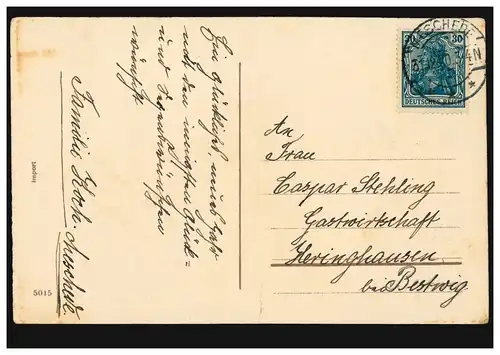 Ein glückliches neues Jahr
und den innigsten Glück-
und Segenswünschen
wünscht
Familie Koch. Meschede.
Import
5015
30 30
DEUTSCHES REICH
MESCHEDE
An
Frau
Caspar Stehling
Gastwirtschaft
Heringhausen
bei Bestwig.